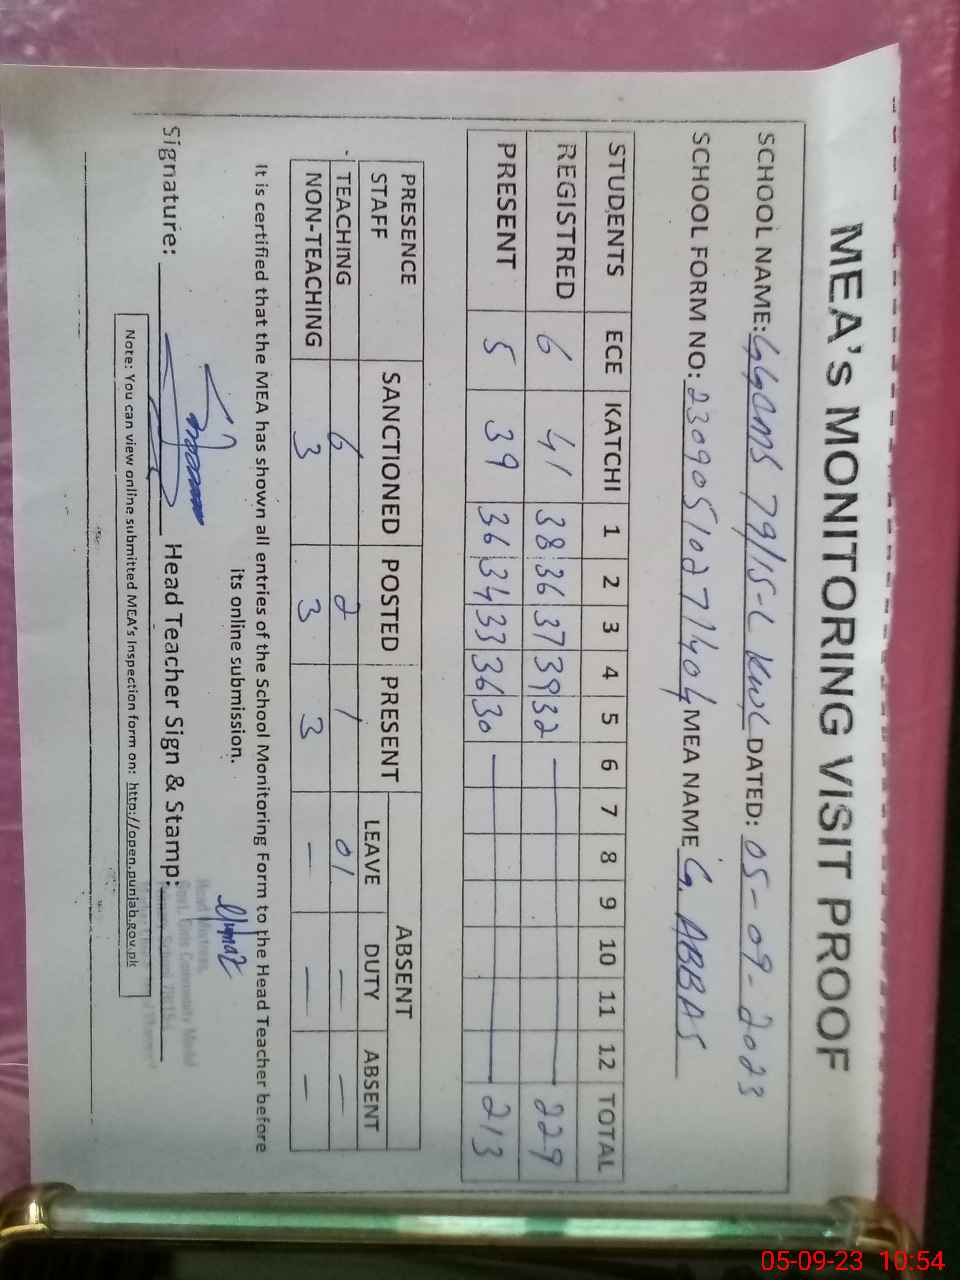 MEA'S MONITORING VISIT PROOF
SCHOOL NAME: GGCMS 79/15-L KWL DATED: 05-09-2023
SCHOOL FORM NO: 23090510277404 MEA NAME G. ABBAS
STUDENTS ECE KATCHI 1 2 3 4 5 6 7 8 9 10 11 12 TOTAL
REGISTRED 6 41 38 36 37 39 32 229
PRESENT 5 39 36 34 33 36 30 213
PRESENCE STAFF SANCTIONED POSTED PRESENT ABSENT
LEAVE DUTY ABSENT
TEACHING 6 2 1 01 — —
NON-TEACHING 3 3 3 — — —
It is certified that the MEA has shown all entries of the School Monitoring Form to the Head Teacher before
its online submission.
Signature: Head Teacher Sign & Stamp:
Head Mistress
Govt. Girls Community Model
School 79/15-L
Note: You can view online submitted MEA's Inspection form on: http://open.punjab.gov.pk
05-09-23 10:54